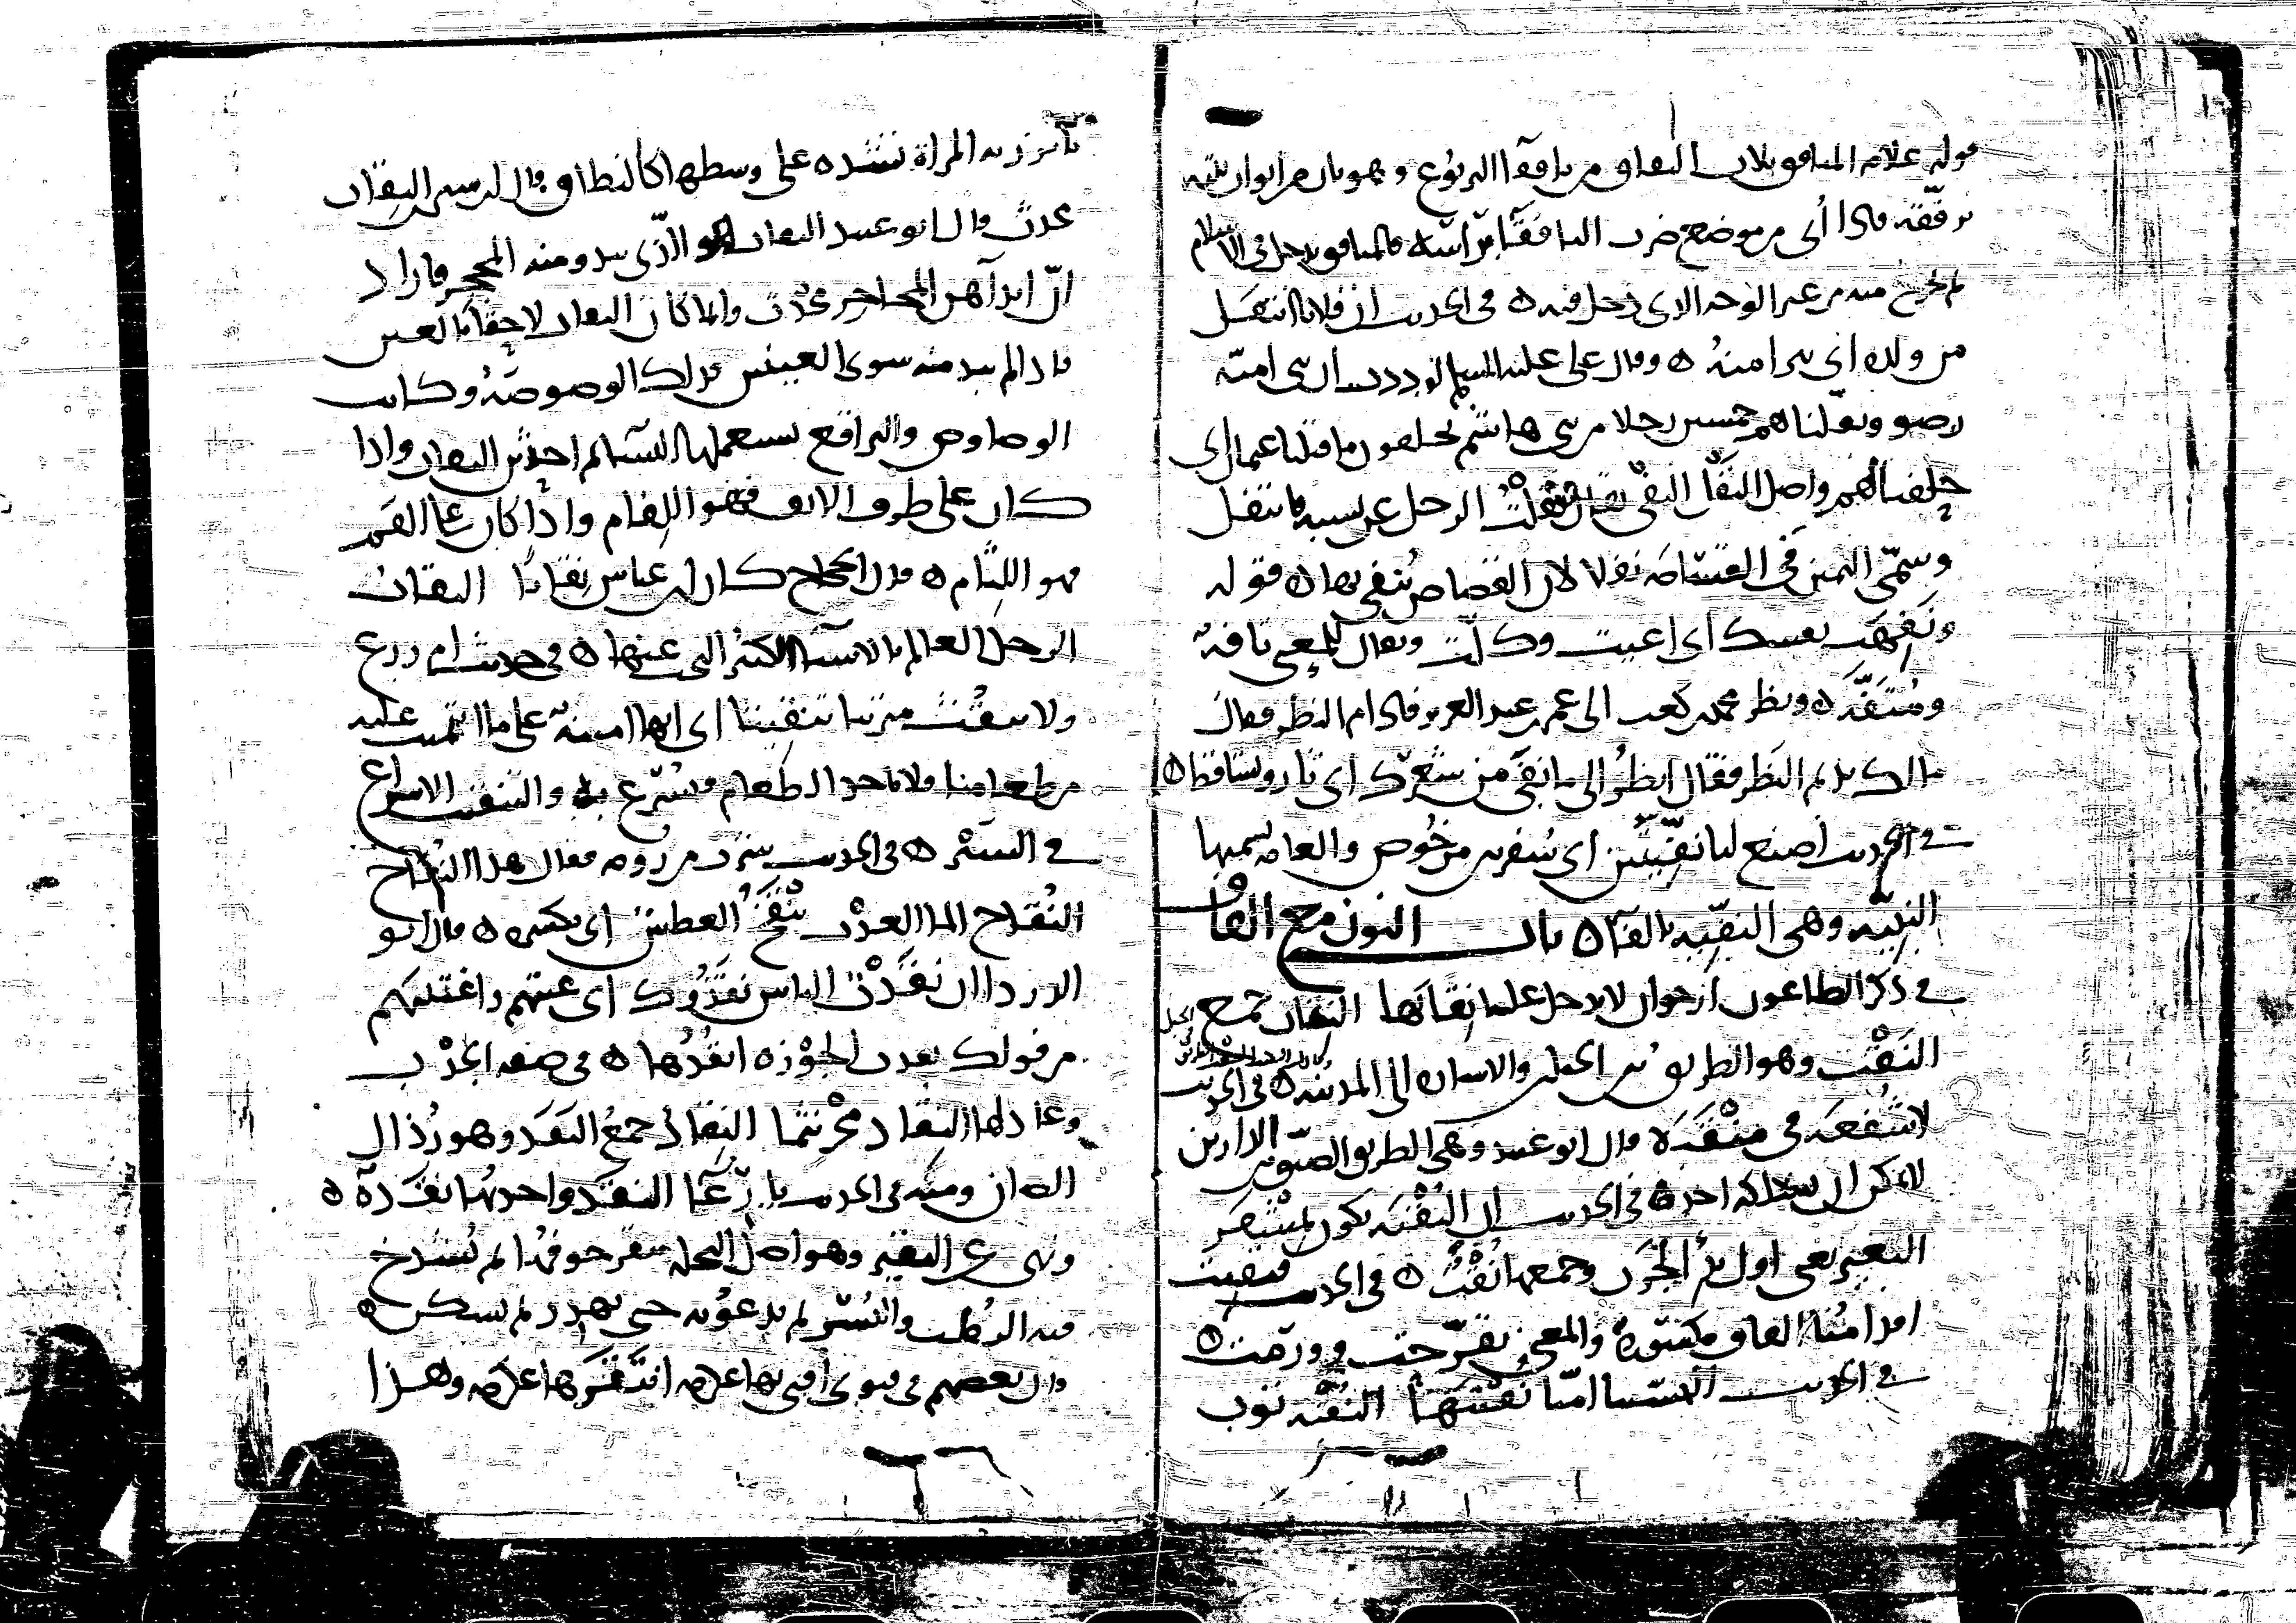 قوله علامة المنافق ثلاث النفاق من نافقا اليربوع وهو باب من ابواب بيته
يرققه فاذا أُتى من موضع ضرب النافقا برأسه فالمنافق يدخل في الاسلام
ثم يخرج منه من غير الوجه الذي دخل فيه ه في الحديث ان فلانا انتفل
من ولده اي تبرا منه ه وقال علي عليه السلم لوددت ان بني امية
رضوا ونفلناهم خمسين رجلا من بني هاشم يحلفون ما قتلنا عثمان اي
حلفنا لهم واصل النفل النفي يقال نفلت الرجل عن نسبه فانتفل
وسمي اليمين في القسامة نفلا لان القصاص ينفى بها ه قوله
ونفهت نفسك اي اعيت وكلت ويقال للمعيي نافه
ومنفه ه ونظر محمد بن كعب الى عمر بن عبد العزيز فادام النظر فقال
مالك تديم النظر فقال انظر الى ما نفى من شعرك اي ثار وتساقط ه
في الحديث اصنع لنا نفيتين اي سفرتين من خوص والعامة تسميها
النبية وهي النفية بالفاء ه باب النون مع القاف
في ذكر الطاعون ارجوا ان لا يدخل علينا نقابها النقاب جمع
النقب وهو الطريق بين الجبلين والاشارة الى المدينة ه في الحديث
لا شفعة في منقبة قال ابو عبيد وهي الطريق الضيق بين الدارين
لا يمكن ان يسلكه احد ه في الحديث ان النقبة تكون بمشفر
البعير يعني اول بدء الجرب وجمعها نقب ه في الحديث فنقبت
اقدامنا القاف مكسورة والمعنى تقرحت وورمت ه
في الحديث البستنا امنا نقبتها النقبة ثوب
تاتزر به المراة تشده على وسطها كالنطاق قال ابن سيرين النقاب
محدث قال ابو عبيد النقاب هو الذي يبدو منه المحجر فاراد
ان ابداهن المحاجر محدث وانما كان النقاب لاحقا بالعين
فاذا لم يبد منه سوى العينين فذلك الوصوصة وكانت
الوصاوص والبراقع تستعملها النساء ثم احدثن النقاب واذا
كان على طرف الانف فهو اللفام واذا كان على الفم
فهو اللثام ه قال الحجاج كان ابن عباس نقابا النقاب
الرجل العالم بالاشياء الكثير البحث عنها ه في حديث ام زرع
ولا تنقث ميرتنا تنقيثا اي انها امينة على ما ائتمنت عليه
من طعامنا فلا تاخذ الطعام وتسرع به والتنقيث الاسراع
في السير ه في الحديث شرب من رومة فقال هذا النقاخ
النقاخ الماء العذب ينقخ العطش اي يكسره ه قال ابو
الدرداء ان نقدت الناس نقدوك اي عبتهم واغتبتهم
من قولك نقدت الجوزة انقدها ه في صفة الجدب
وعاد لها النقاد مجرنثما النقاد جمع النقد وهو رذال
الضان ومنه في الحديث يا رعاء النقد واحدتها نقدة ه
ونهى عن النقير وهو اصل النخلة ينقر جوفها ثم يشدخ
فيه الرطب والبسر ثم يدعونه حتى يهدر ثم يسكن ه
قال بعضهم في فتوى افتى بها عكرمة انتقرها عكرمة وهذا